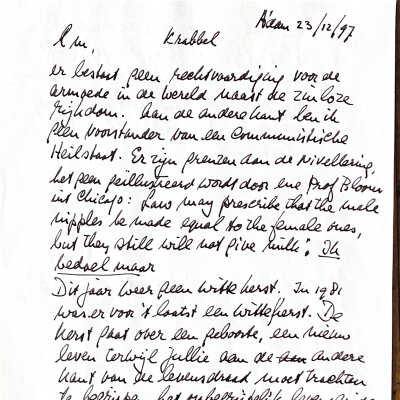 A'dam 23/12/97
Krabbel
er bestaat geen rechtvaardiging voor de
armoede in de wereld naast de zinloze
rijkdom. Aan de andere kant ben ik
geen voorstander van een Communistische
Heilstaat. Er zijn grenzen aan de nivellering,
hetgeen geillustreerd wordt door ene Prof Bloom
uit Chicago: Laws may prescribe that the male
nipples be made equal to the female ones,
but they still will not give milk". Ik
bedoel maar
Dit jaar weer geen witte kerst. In 1981
was er voor 't laatst een witte kerst. De
kerst gaat over een geboorte, een nieuw
leven terwijl jullie aan de andere
kant van de levensdraad moet trachten
te begrijpen het onbegrijpelijk